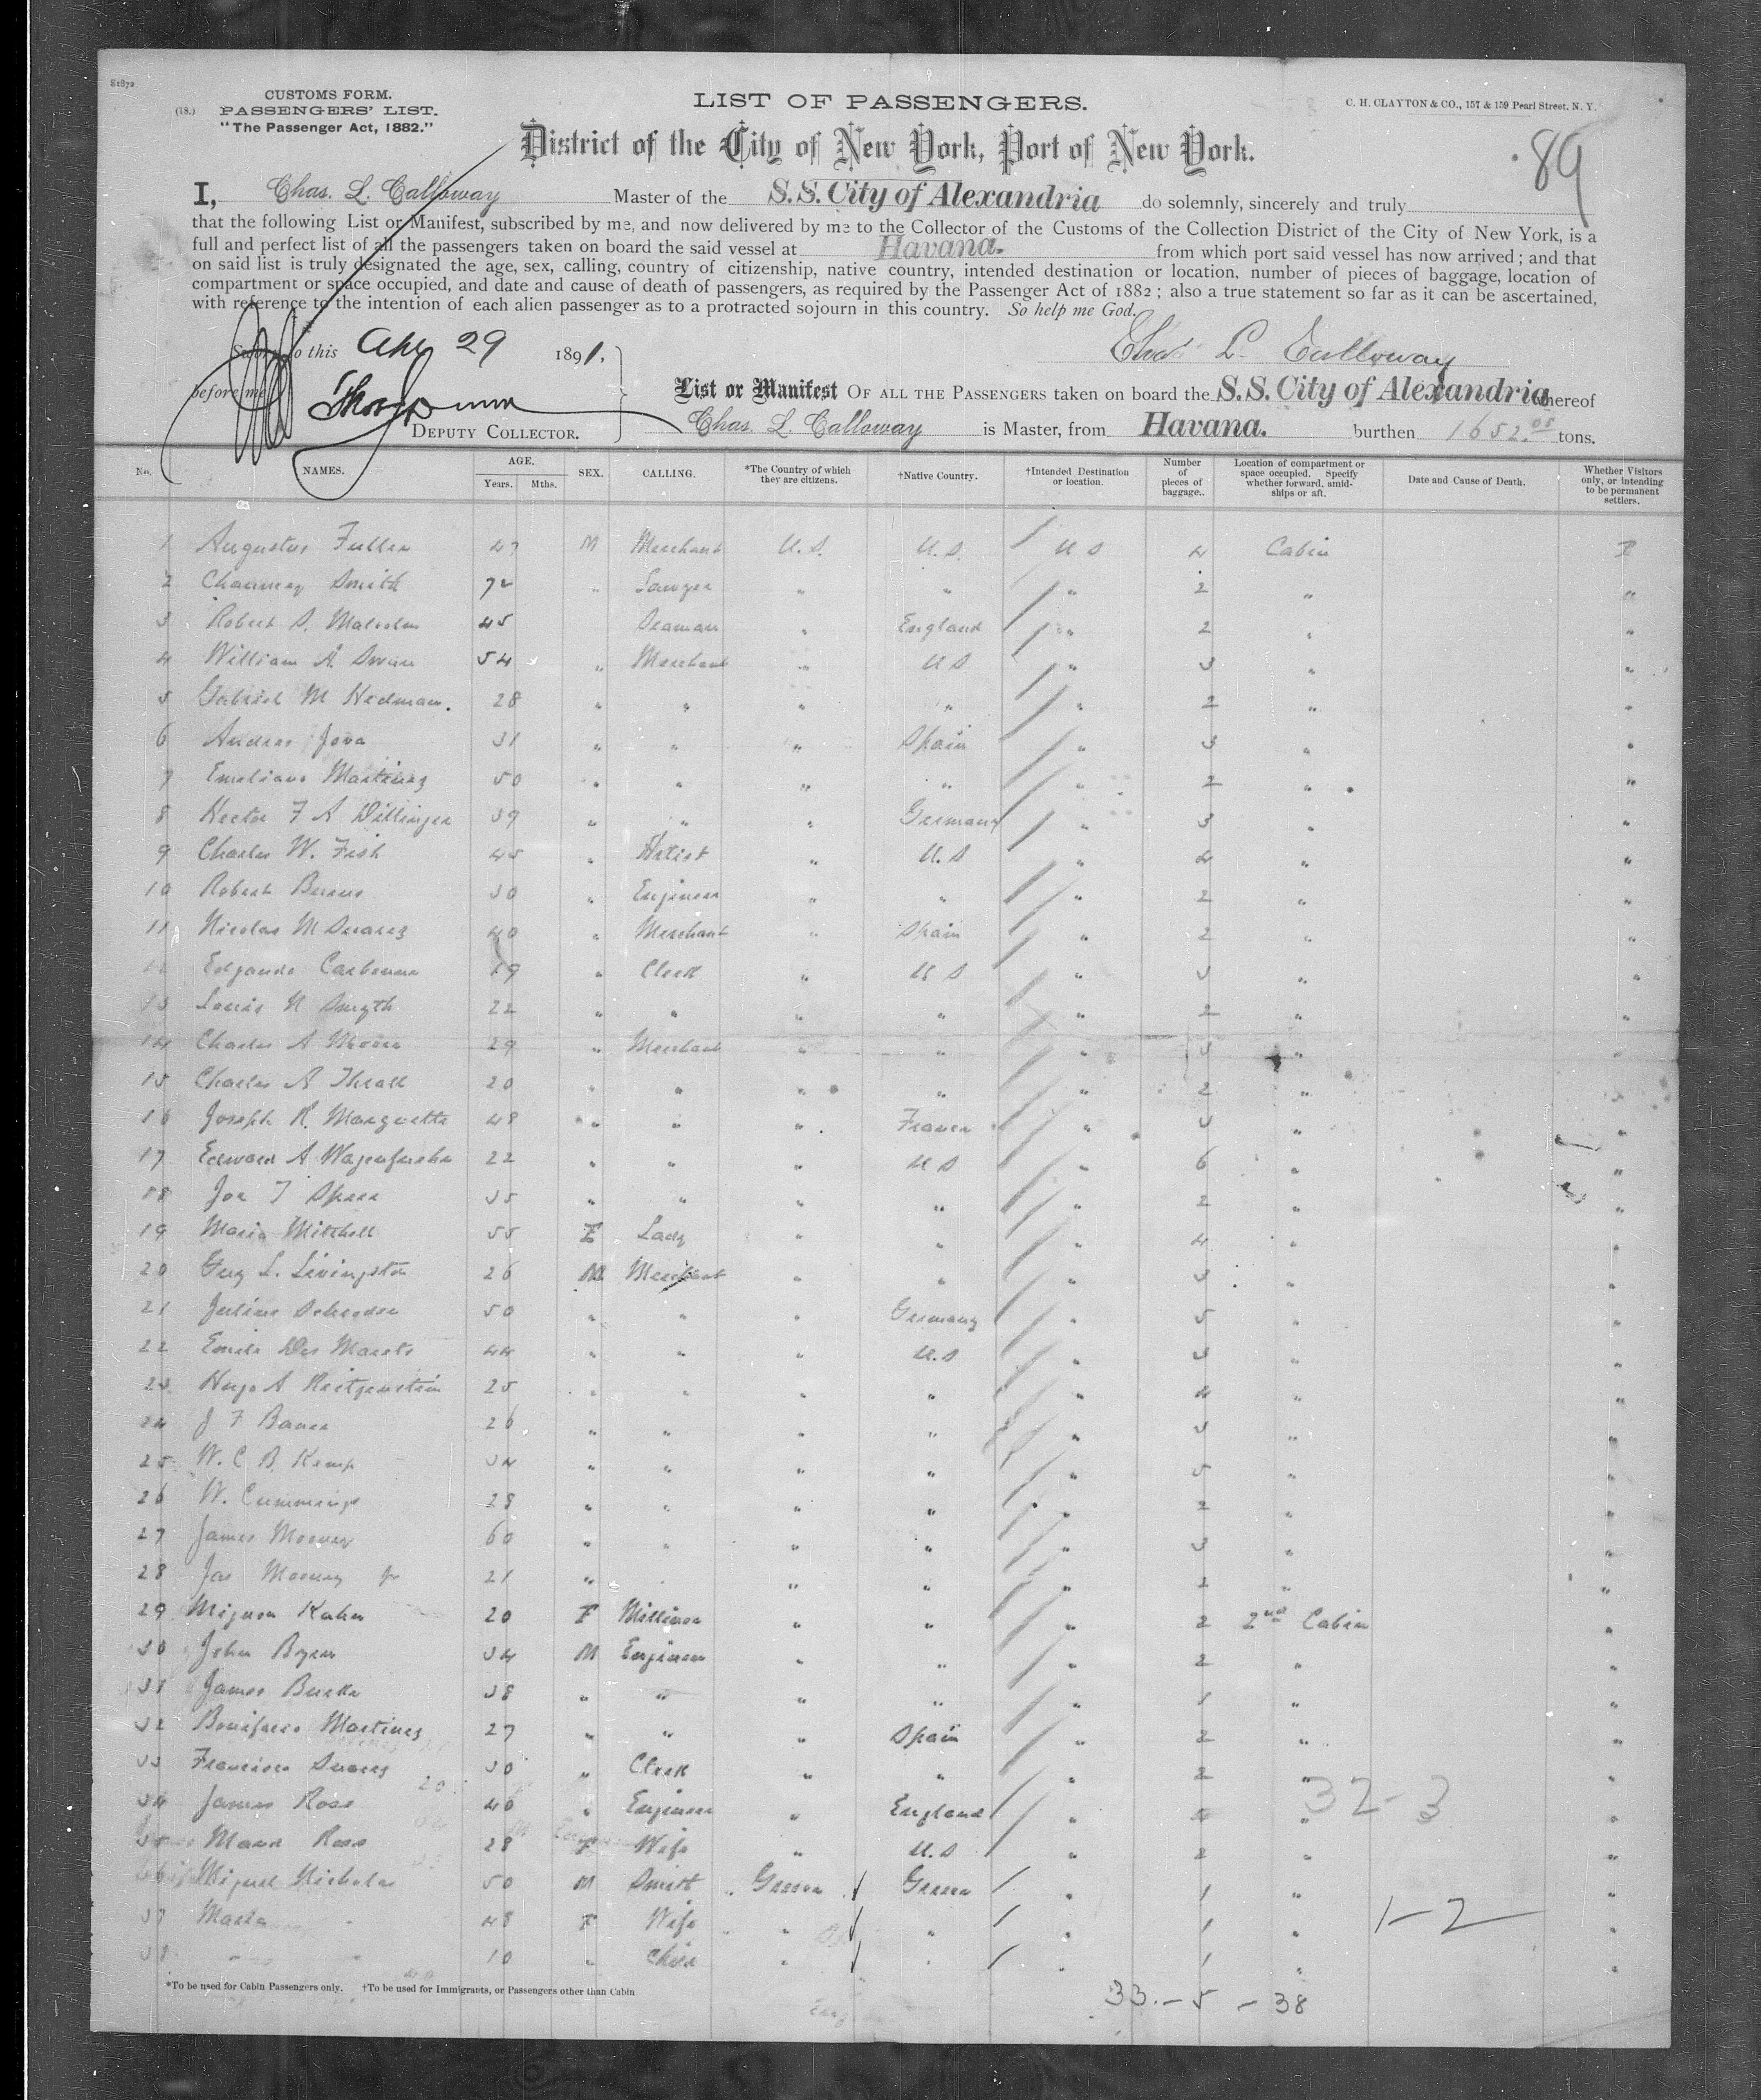 81872
CUSTOMS FORM.
(18.) PASSENGERS' LIST.
"The Passenger Act, 1882."
LIST OF PASSENGERS.
C. H. CLAYTON & CO., 157 & 159 Pearl Street, N. Y.
District of the City of New York, Port of New York.
89
I, Chas. L. Calloway Master of the S.S. City of Alexandria do solemnly, sincerely and truly
that the following List or Manifest, subscribed by me, and now delivered by me to the Collector of the Customs of the Collection District of the City of New York, is a
full and perfect list of all the passengers taken on board the said vessel at Havana. from which port said vessel has now arrived; and that
on said list is truly designated the age, sex, calling, country of citizenship, native country, intended destination or location, number of pieces of baggage, location of
compartment or space occupied, and date and cause of death of passengers, as required by the Passenger Act of 1882; also a true statement so far as it can be ascertained,
with reference to the intention of each alien passenger as to a protracted sojourn in this country. So help me God.
Sworn to this Apr 29 1891.
Chas L. Calloway
before me
List or Manifest OF ALL THE PASSENGERS taken on board the S.S. City of Alexandria whereof
DEPUTY COLLECTOR.
Chas. L. Calloway is Master, from Havana. burthen 1652.05 tons.
No. NAMES. AGE. Years. Mths. SEX. CALLING. *The Country of which they are citizens. †Native Country. †Intended Destination or location. Number of pieces of baggage. Location of compartment or space occupied. Specify whether forward, amidships or aft. Date and Cause of Death. Whether Visitors only, or intending to be permanent settlers.
1 Augustus Fuller 47 M Merchant U.S. U.S. U S 4 Cabin
2 Chauncey Smith 72 " Lawyer " " " 2 " "
3 Robert S. Malcolm 45 Seaman " England " 2 " "
4 William A. Swan 54 " Merchant " U S " 3 " "
5 Gabriel M Hedman. 28 " " " " " 2 " "
6 Andres Jova 31 " " " Spain " 3 " "
7 Emeliano Martinez 50 " " " " " 2 " "
8 Hector F A Dillinger 39 " " " Germany " 3 " "
9 Charles W. Fish 45 " Artist " U.S " 4 " "
10 Robert Burns 30 " Engineer " " " 2 " "
11 Nicolas M Suarez 40 " Merchant " Spain " 2 " "
12 Carbonne 19 " Clerk " U S " 3 " "
13 Louis N Smyth 22 " " " " " 2 " "
14 Charles A Moore 29 " Merchant " " " 3 " "
15 Charles A Thrall 20 " " " " " 2 " "
16 Joseph R. Marquette 48 " " " France " 3 " "
17 Edward A 22 " " " U S " 6 " "
18 Joe T Spear 35 " " " " " 2 " "
19 Maria Mitchell 55 F Lady " " " 4 " "
20 Guy L. Livingston 26 M Merchant " " " 3 " "
21 Julius Schroder 50 " " " Germany " 5 " "
22 Emile Des Marets 44 " " " U.S " 3 " "
23 Hugo A Reitzenstein 25 " " " " " 4 " "
24 J F Bauer 26 " " " " " 3 " "
25 W. C B. Kemp 34 " " " " " 5 " "
26 W. Cummings 28 " " " " " 2 " "
27 James Mooney 60 " " " " " 3 " "
28 Jas Mooney Jr 21 " " " " 2 " "
29 Mignon Kahn 20 F Milliner " " " 2 2nd Cabin "
30 John Byer 34 M Engineer " " " 2 " "
31 James Burke 38 " " " " " 1 " "
32 Bonifacio Martinez 27 " " " Spain " 2 " "
33 Francisco Suarez 30 " Clerk " " " 2 " "
34 James Ross 40 " Engineer " England " 4 " "
32-3
35 Maud Ross 28 F Wife " U.S " 2 " "
36 Miguel Nicholas 50 M Smith Greece Greece " 1 " "
37 Maria " 48 F Wife " " " 1 " "
1-2
38 " 10 " Child " " " 1 " "
*To be used for Cabin Passengers only. †To be used for Immigrants, or Passengers other than Cabin
33.-5-38